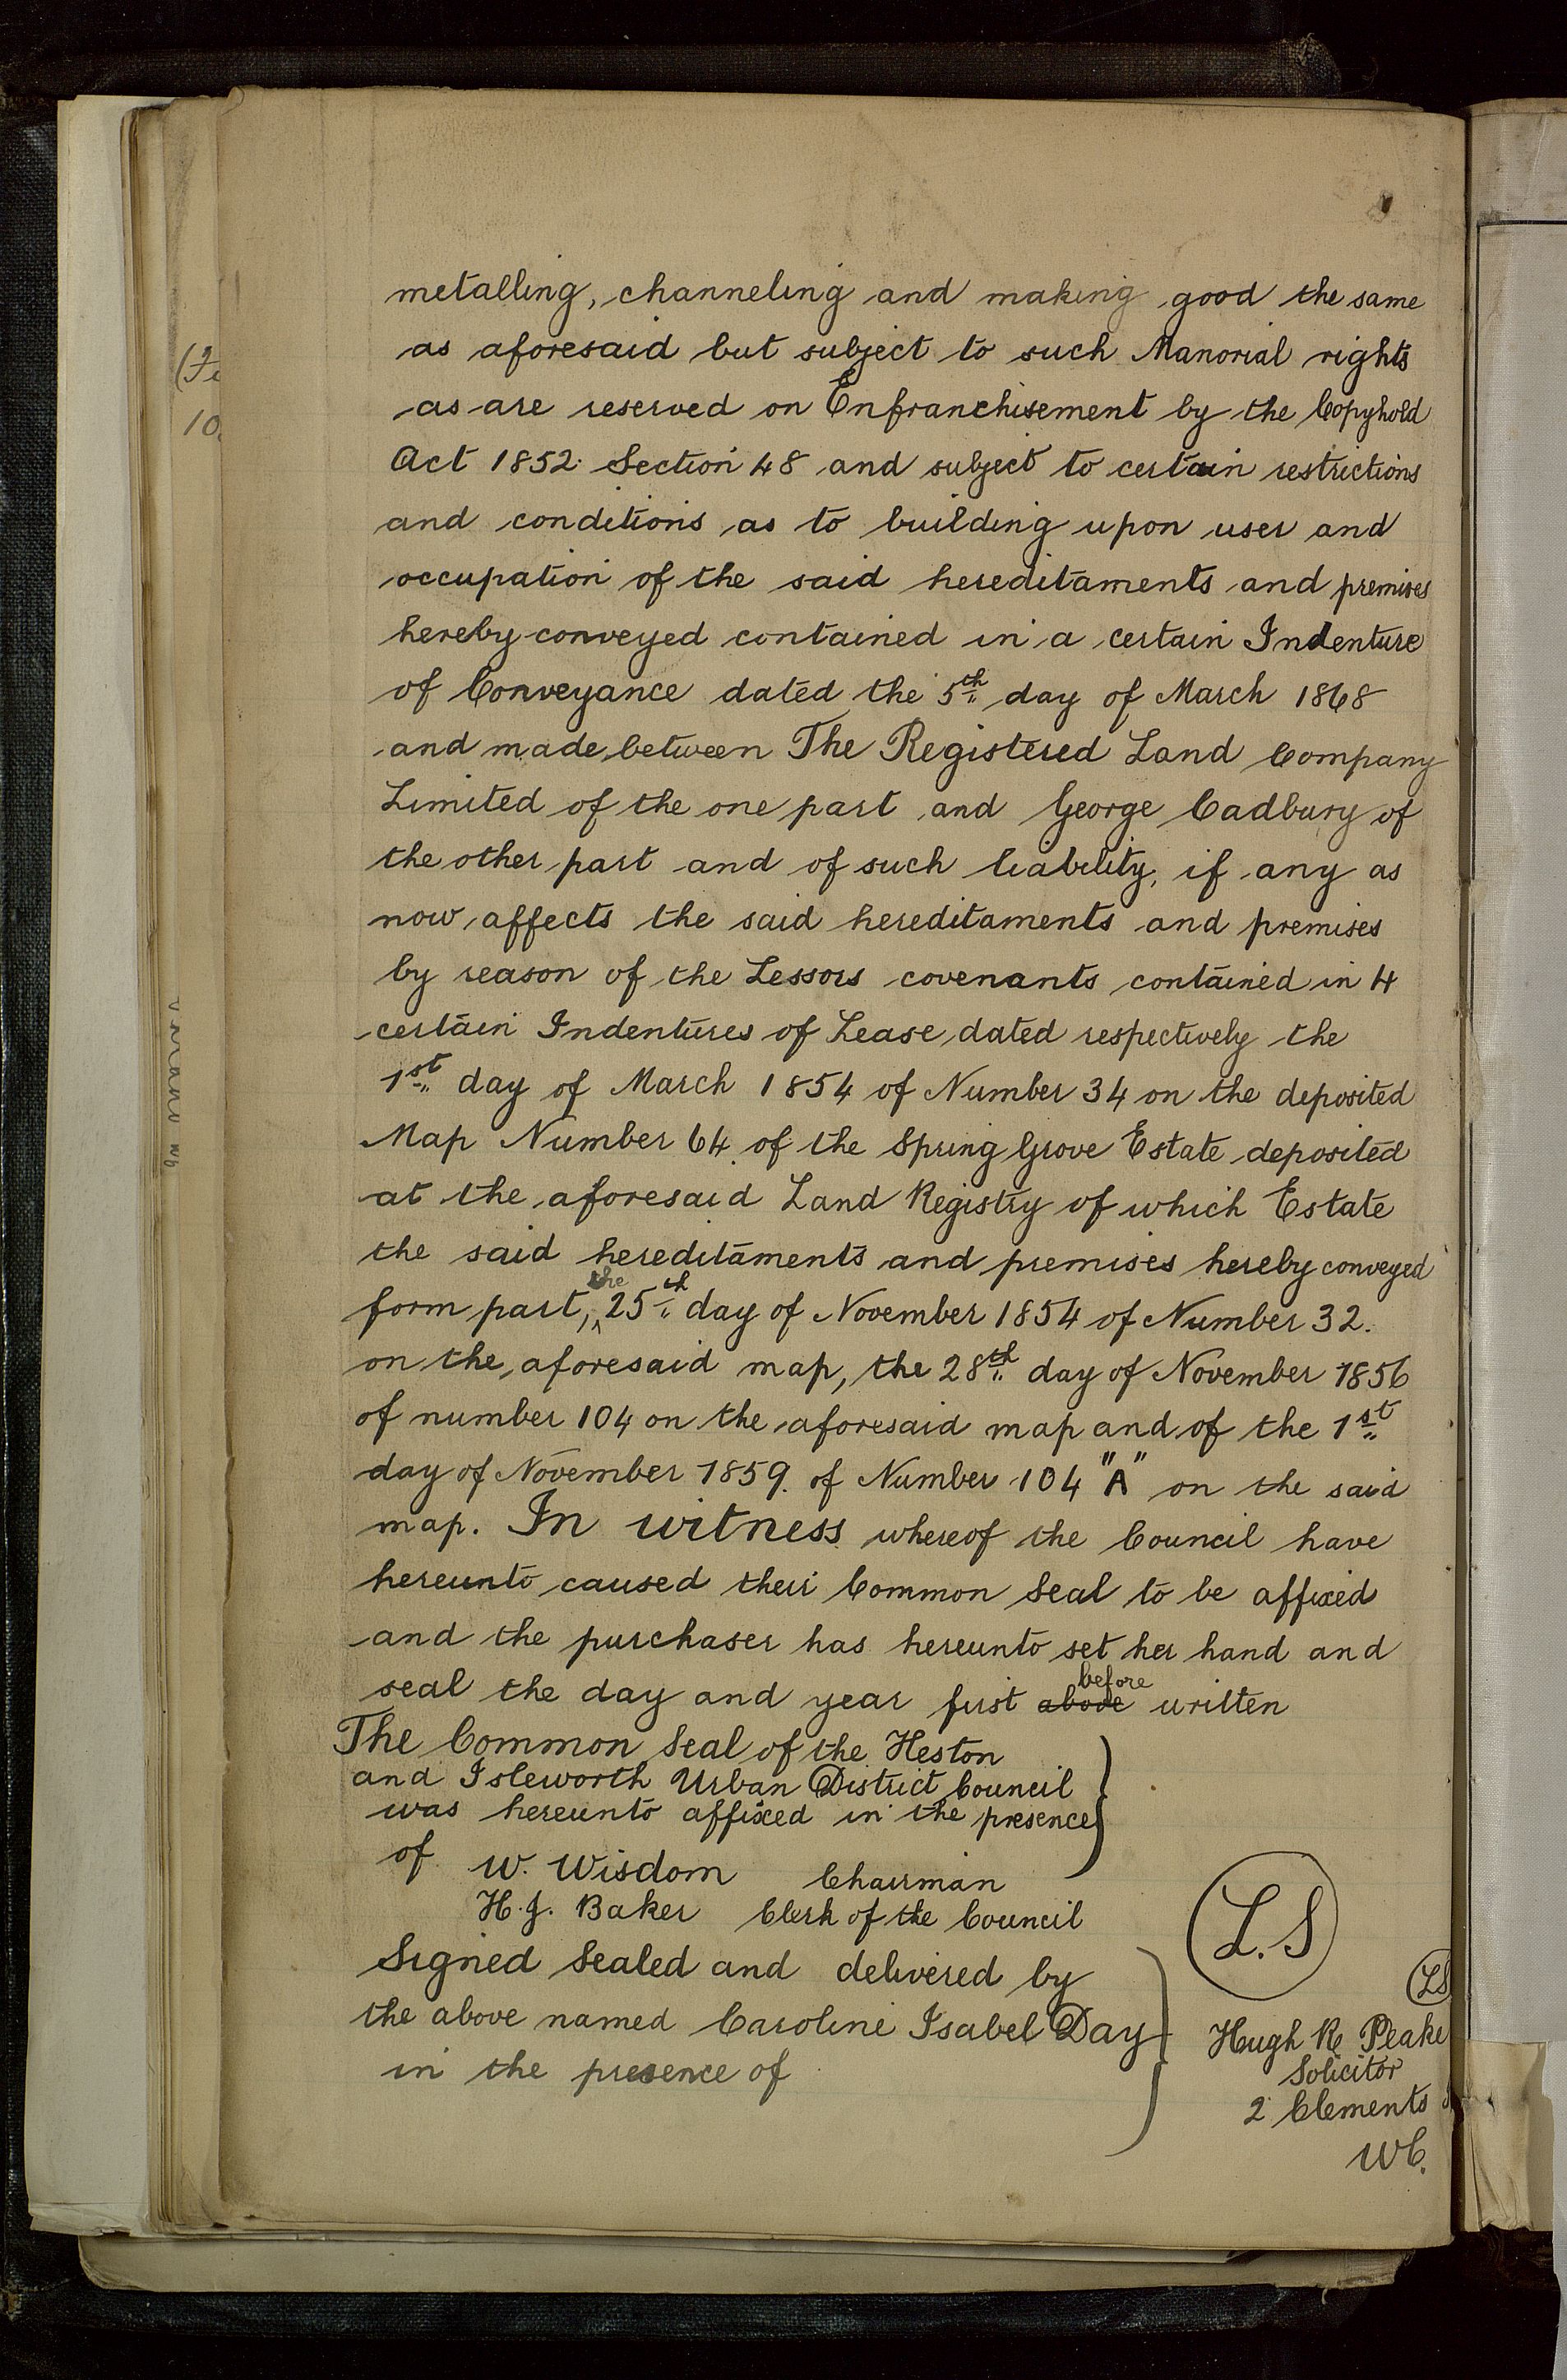 metalling, channeling and making good the same
as aforesaid but subject to such Manorial rights
as are reserved on Enfranchisement by the Copyhold
Act 1852 Section 48 and subject to certain restrictions
and conditions as to building upon user and
occupation of the said hereditaments and premises
hereby conveyed contained in a certain Indenture
of Conveyance dated the 5th day of March 1868
and made between The Registered Land Company
Limited of the one part and George Cadbury of
the other part and of such liability, if any as
now affects the said hereditaments and premises
by reason of the Lessors covenants contained in 4
certain Indentures of Lease dated respectively the
1st day of March 1854 of Number 34 on the deposited
Map Number 64 of the Spring Grove Estate deposited
at the aforesaid Land Registry of which Estate
the said hereditaments and premises hereby conveyed
form part, the 25th day of November 1854 of Number 32.
on the aforesaid map, the 28th day of November 1856
of number 104 on the aforesaid map and of the 1st
day of November 1859. of Number 104 "A" on the said
map. In witness whereof the Council have
hereunto caused their Common Seal to be affixed
and the purchaser has hereunto set her hand and
before
seal the day and year first above written
The Common Seal of the Heston
and Isleworth Urban District Council
was hereunto affixed in the presence
of W. Wisdom Chairman
H. J. Baker Clerk of the Council
L.S
Signed Sealed and delivered by
the above named Caroline Isabel Day
in the presence of
LS
Hugh R Peake
Solicitor
2 Clements
WC.
(
10